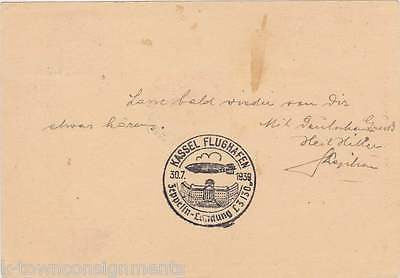 Lass bald wieder von dir
etwas hören.
Mit Deutschen Gruß
Heil Hitler
KASSEL FLUGHAFEN
30.7. 1939
Zeppelin-Landung LZ 130
k-townconsignments